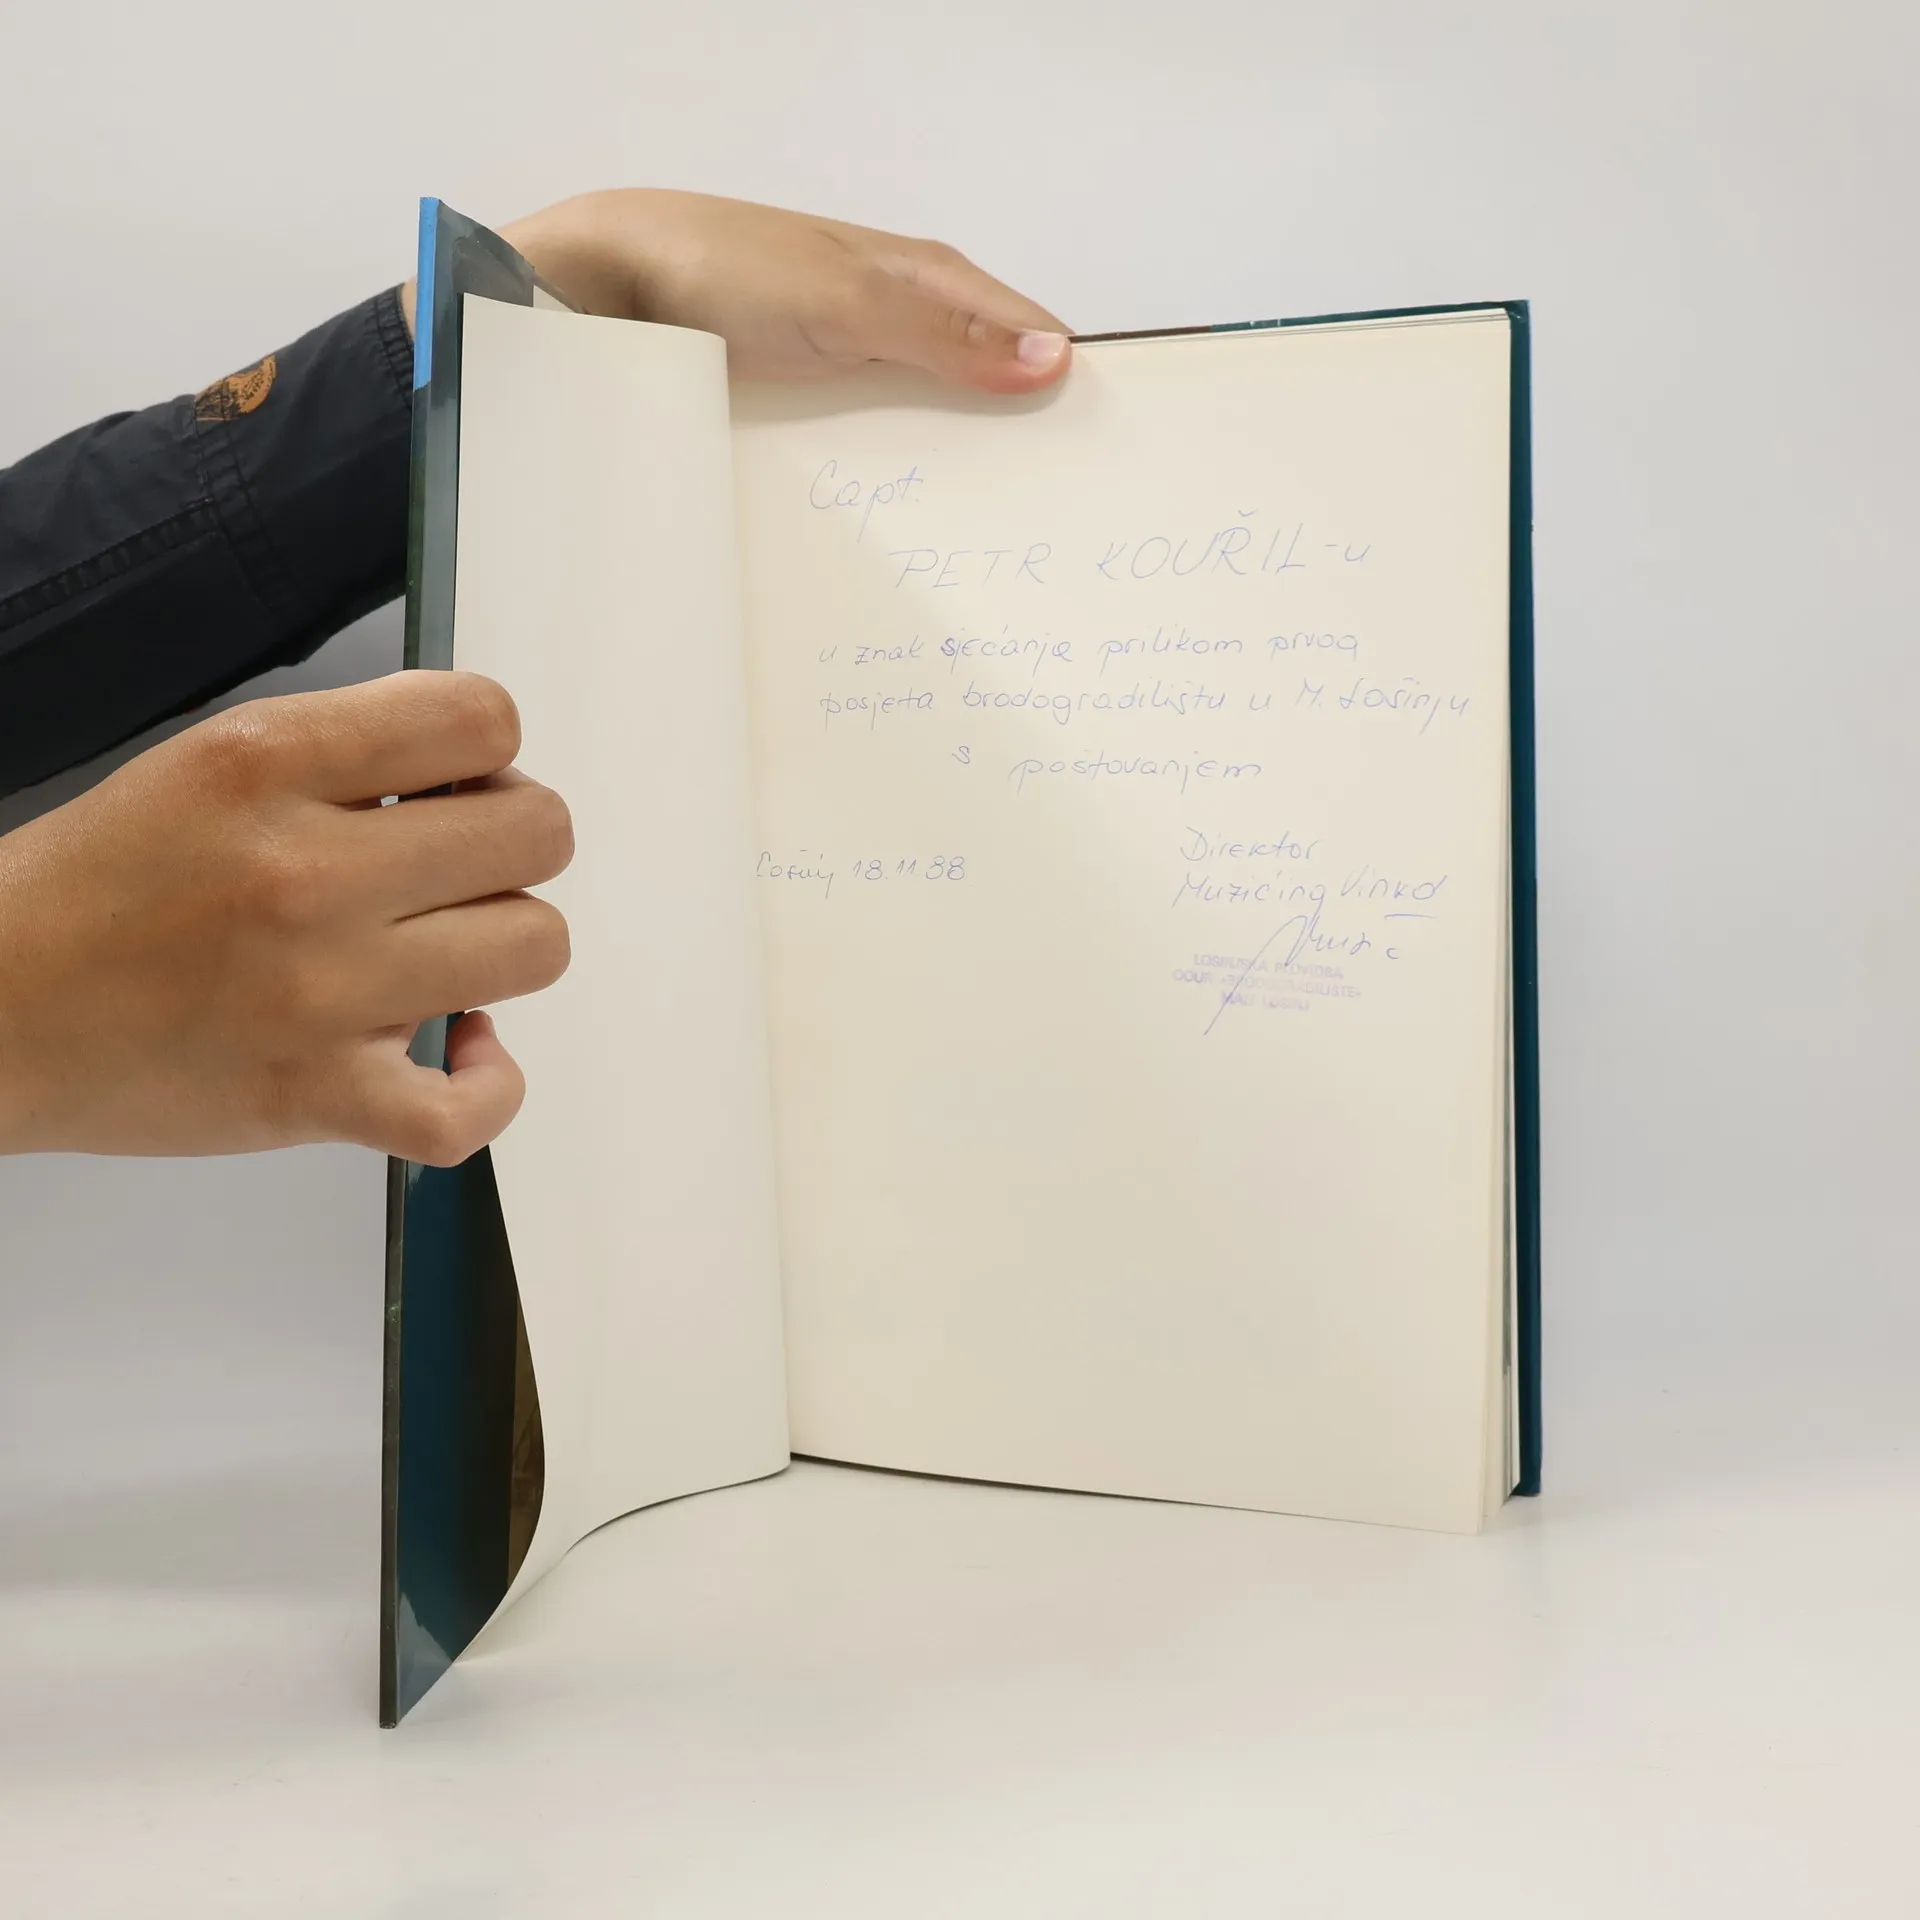 Capt.
PETR KOUŘIL-u
u znak sjećanja prilikom prvog
posjeta brodogradilištu u M. Lošinju
s poštovanjem
Lošinj 18.11 88
Direktor
Muzić ing Vinko
Muzić
LOŠINJSKA PLOVIDBA
OOUR »BRODOGRADILIŠTE«
MALI LOŠINJ